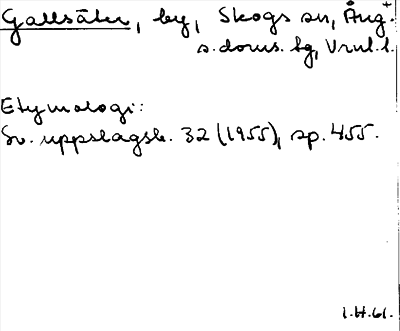 Gallsäter, by, Skogs sn, Ång.
s. doms. hg, Vrnl. l.
Etymologi:
Sv. uppslagsb. 32 (1955), sp. 455.
1.H.61.